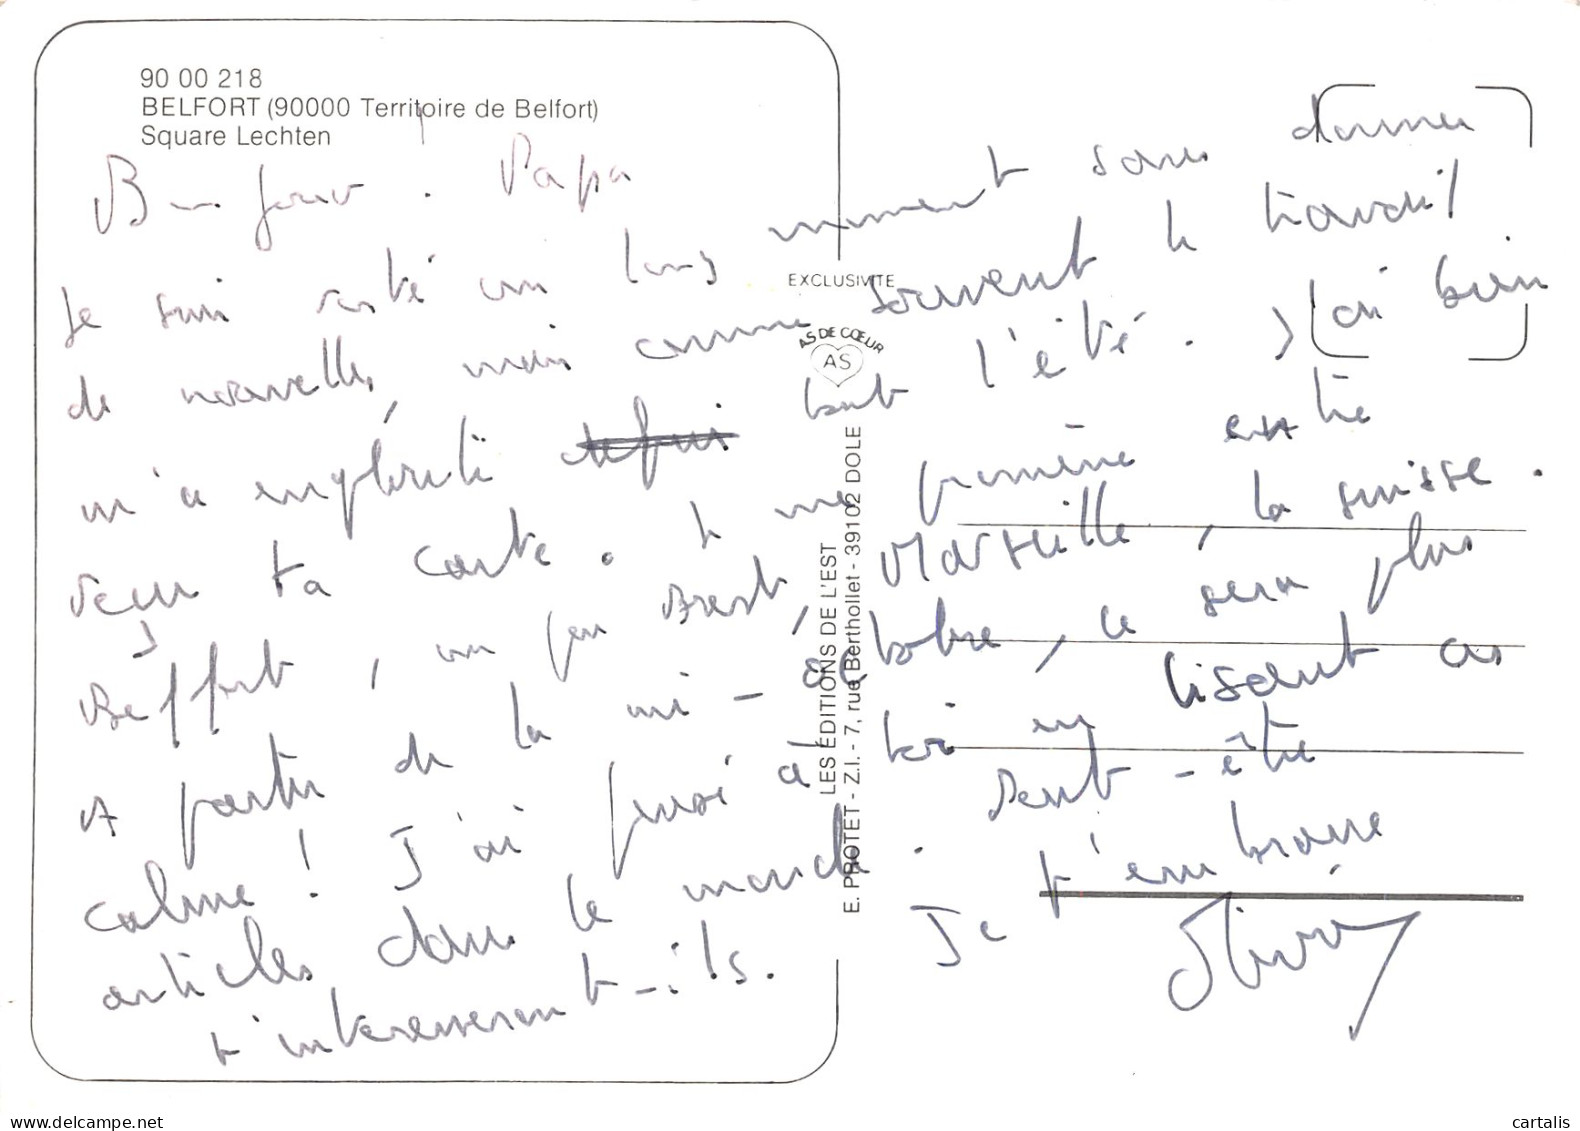 90 00 218
BELFORT (90000 Territoire de Belfort)
Square Lechten
Bonjour. Papa
Je suis resté un long moment sans donner
de nouvelles, mais comme souvent le travail
m'a englouti tout l'été. J'ai bien
reçu ta carte. Je me promène entre
Belfort, un peu Brest, Marseille, la suisse.
A partir de la mi-octobre, ce sera plus
calme! J'ai pensé à toi en lisant ces
articles dans le monde. Peut-être
t'intéresseront-ils. Je t'embrasse
Olivier
EXCLUSIVITE
AS DE CŒUR
AS
LES ÉDITIONS DE L'EST
E. PROTET - Z.I. - 7, rue Berthollet - 39102 DOLE
cartalis
delcampe.net